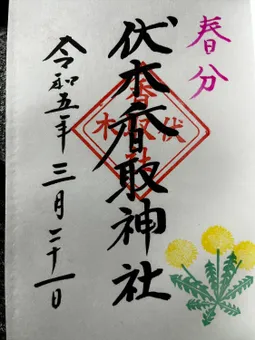 春分
伏木香取神社
令和五年三月二十一日
香取社
伏木